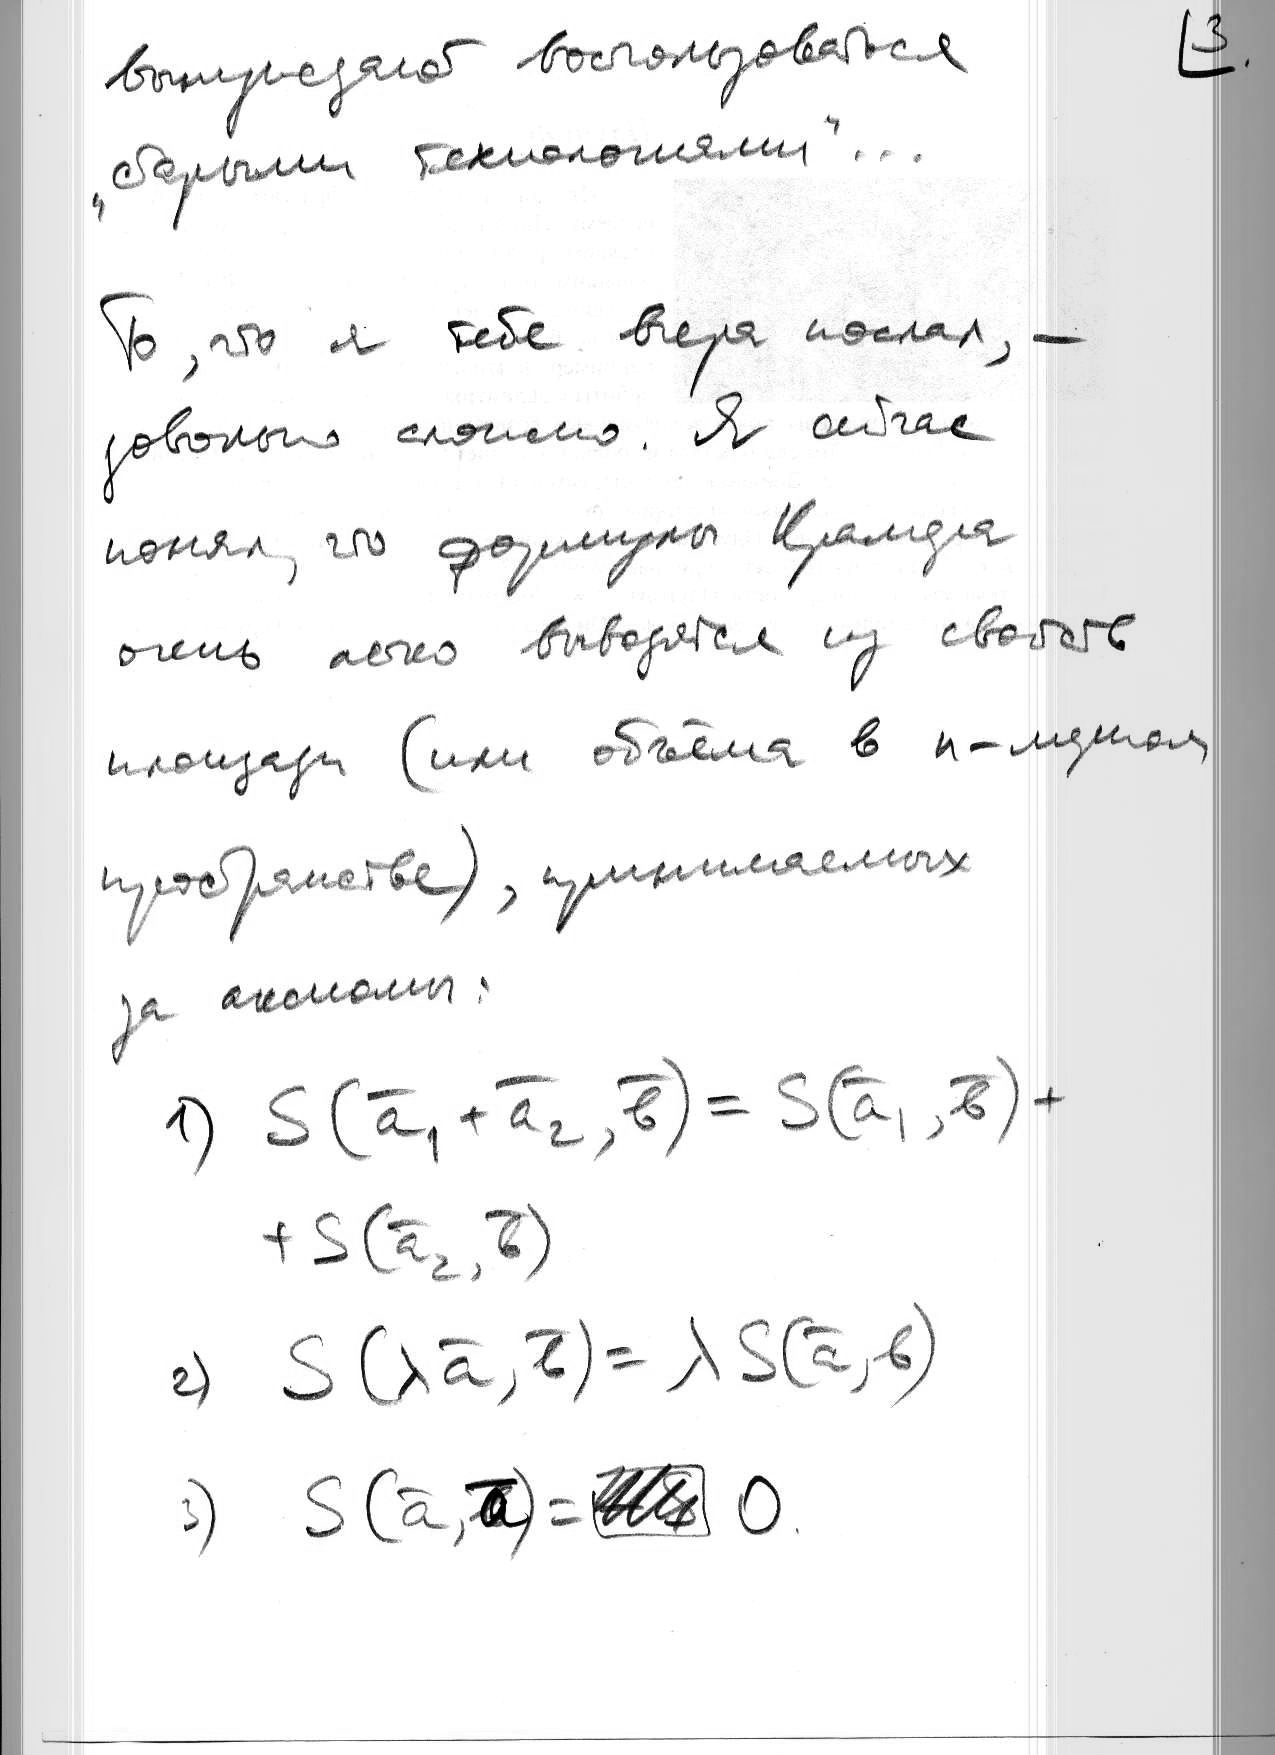 3.
вынуждают воспользоваться
„старыми технологиями“...
То, что я тебе вчера послал, —
довольно сложно. Я сейчас
понял, что формулы Крамера
очень легко выводятся из свойств
площади (или объёма в n-мерном
пространстве), принимаемых
за аксиомы:
1) S(a̅₁ + a̅₂, b̅) = S(a̅₁, b̅) +
+ S(a̅₂, b̅)
2) S(λa̅, b̅) = λS(a̅, b)
3) S(a̅, a̅) = 0.